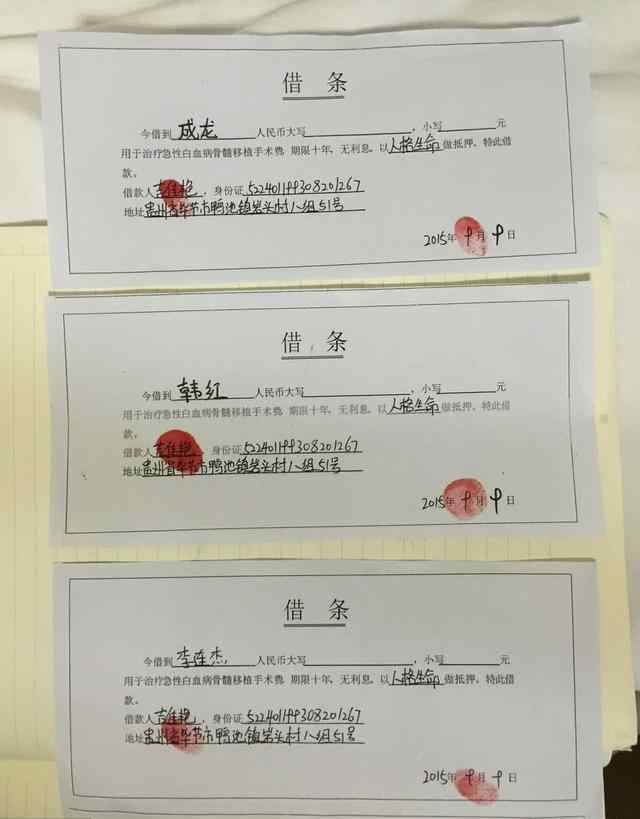 借 条
今借到 成龙 人民币大写 小写 元
用于治疗急性白血病骨髓移植手术费，期限十年，无利息。以人格生命做抵押。特此借
款。
借款人吉佳艳，身份证522401199308201267
地址贵州省毕节市鸭池镇岩头村八组51号
2015年9月9日
借 条
今借到 韩红 人民币大写 小写 元
用于治疗急性白血病骨髓移植手术费，期限十年，无利息。以人格生命做抵押。特此借
款。
借款人吉佳艳，身份证522401199308201267
地址贵州省毕节市鸭池镇岩头村八组51号
2015年9月9日
借 条
今借到 李连杰 人民币大写 小写 元
用于治疗急性白血病骨髓移植手术费，期限十年，无利息。以人格生命做抵押。特此借
款。
借款人吉佳艳，身份证522401199308201267
地址贵州省毕节市鸭池镇岩头村八组51号
2015年9月9日